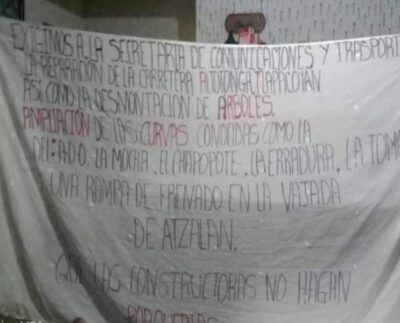 EXIGIMOS A LA SECRETARIA DE COMUNICACIONES Y TRASPORTE
LA REPARACION DE LA CARRETERA ALTOTONGA, TLAPACOYAN
ASI COMO LA DESMONTACION DE ARBOLES.
AMPLIACION DE LAS CURVAS CONOCIDAS COMO LA
LA MOCHA, EL CHAPOPOTE, LA ERRADURA, LA TOMA
UNA RAMPA DE FRENADO EN LA VAJADA
DE ATZALAN.
QUE LAS CONSTRUCTORAS NO HAGAN
PORQUERIAS